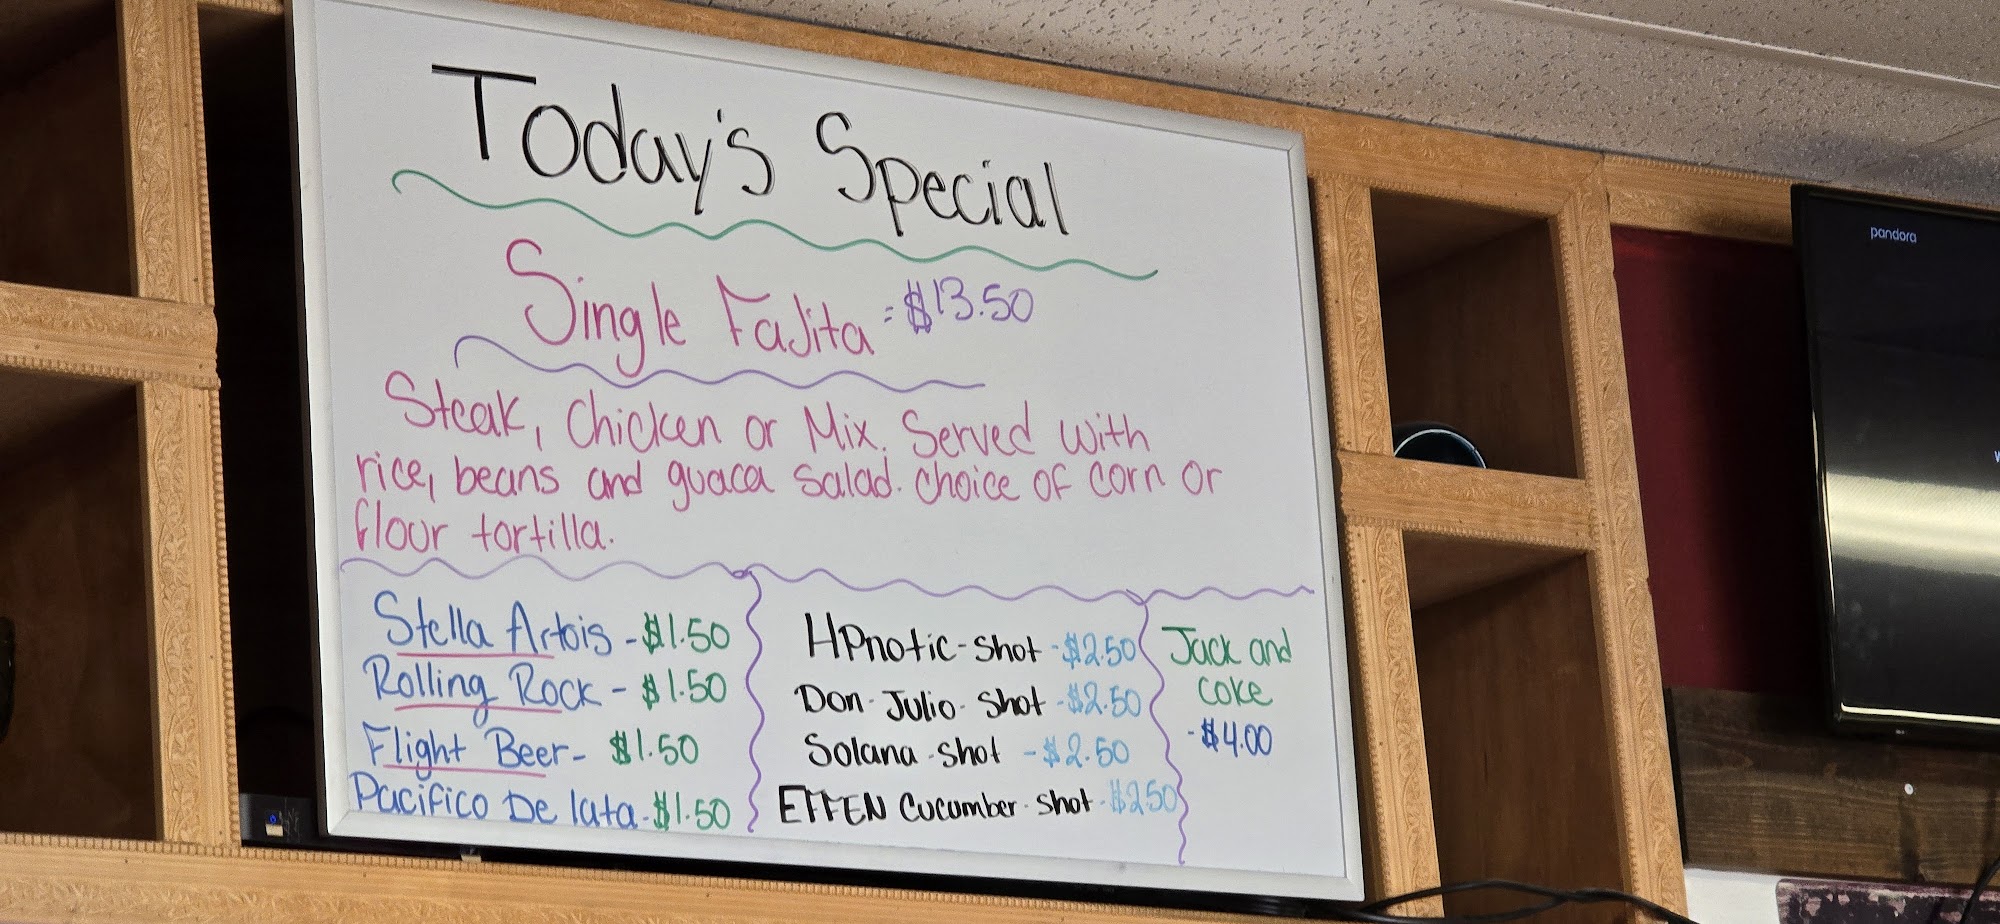 Today's Special
Single Fajita = $13.50
Steak, Chicken or Mix. Served with
rice, beans and guaca salad. choice of corn or
flour tortilla.
Stella Artois - $1.50
Rolling Rock - $1.50
Flight Beer - $1.50
Pacifico De lata - $1.50
HPnotic - shot - $2.50
Don - Julio - Shot - $2.50
Solana - shot - $2.50
EFFEN Cucumber - shot - $2.50
Jack and
coke
- $4.00
pandora